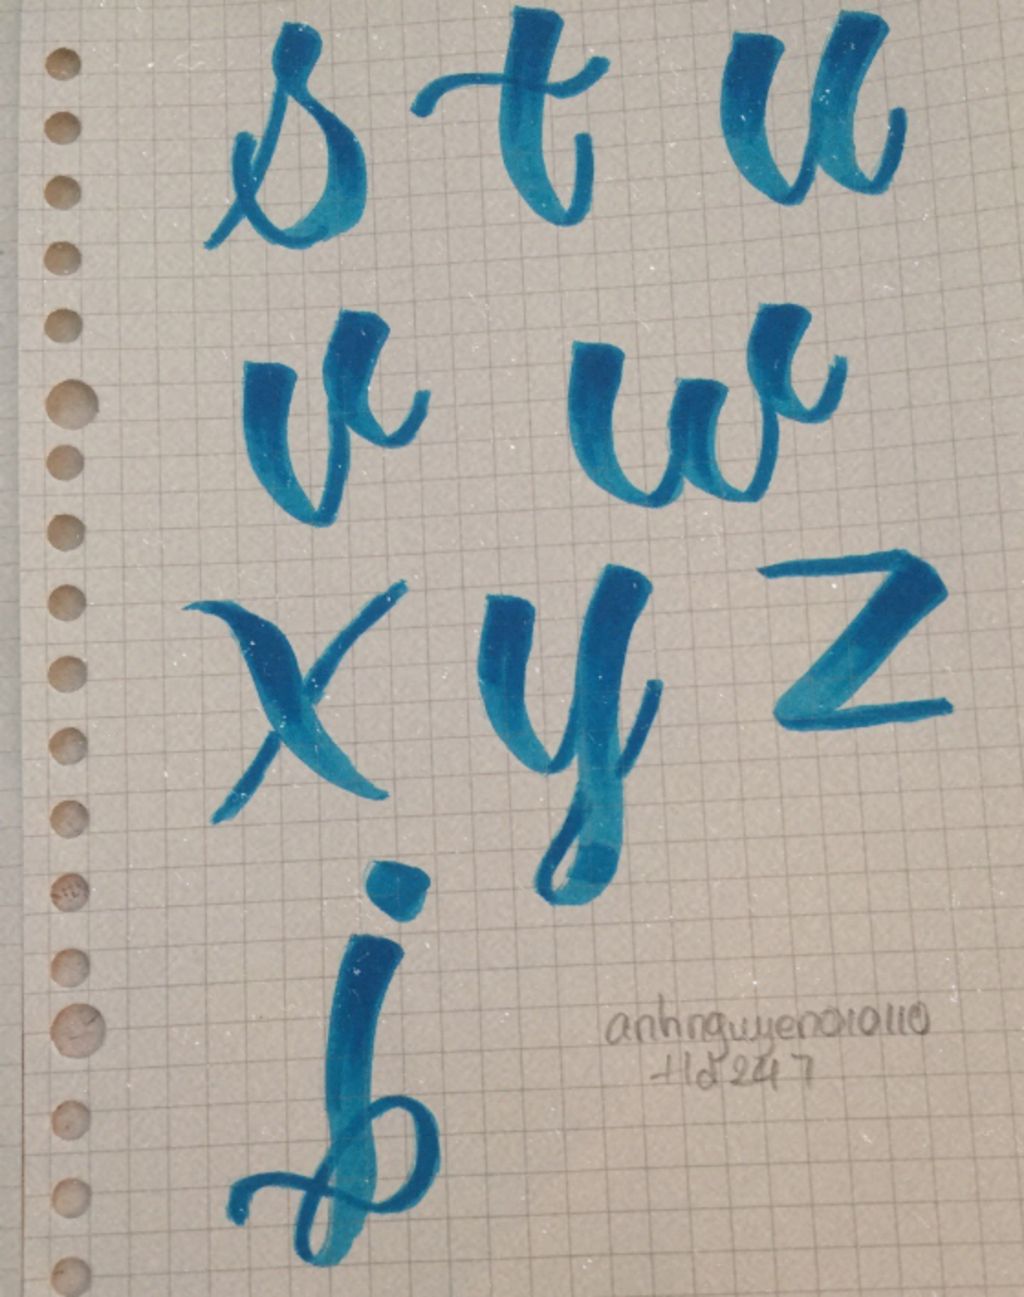 s t u
v w
x y z
j
anhnguyen010110